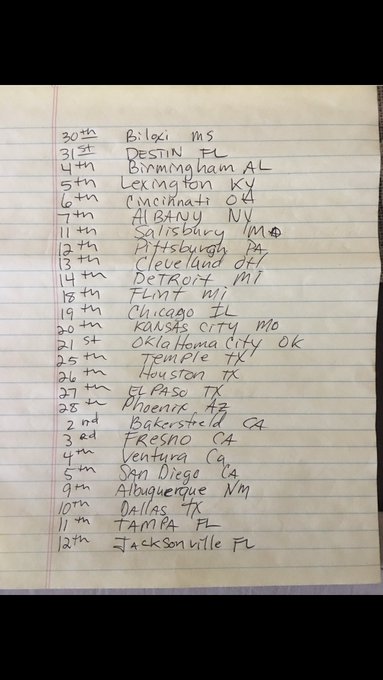 30th Biloxi MS
31st DESTIN FL
4th Birmingham AL
5th Lexington KY
6th Cincinnati OH
7th AlBANY NY
11th Salisbury MD
12th Pittsburgh PA
13th Cleveland OH
14th DeTROIT MI
18th FLINT Mi
19th Chicago IL
20th KANSAS CITY MO
21st OKlaHoma CITY OK
25th TEMPLE TX
26th Houston TX
27th EL PASO TX
28th Phoenix AZ
2nd Bakersfield CA
3rd FRESNO CA
4th Ventura Ca
5th SAN Diego CA
9th Albuquerque NM
10th DALLAS TX
11th TAMPA FL
12th JAcksonville FL